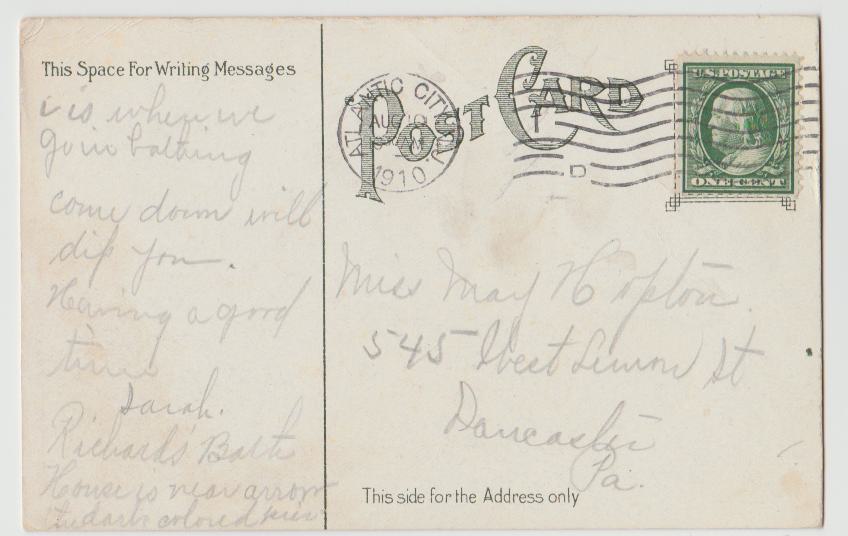 This Space For Writing Messages
POST CARD
ATLANTIC CITY, N.J.
AUG 10
1910
D
U.S. POSTAGE
ONE CENT
is when we
go in bathing
come down will
dip you.
Having a good
time
Sarah.
Richards Bath
House is near arrow
the dark colored
Miss May Hopton
545 West Lemon St
Lancaster
Pa.
This side for the Address only